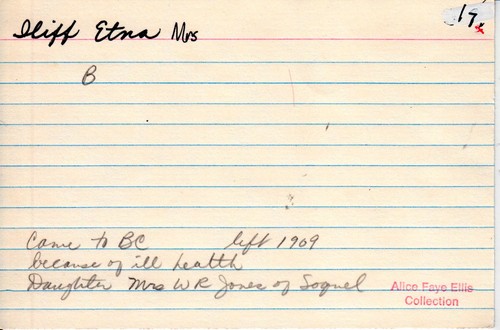 17
Iliff Etna Mrs
B
Came to BC left 1909
because of ill health
Daughter Mrs W R Jones of Soquel
Alice Faye Ellis
Collection